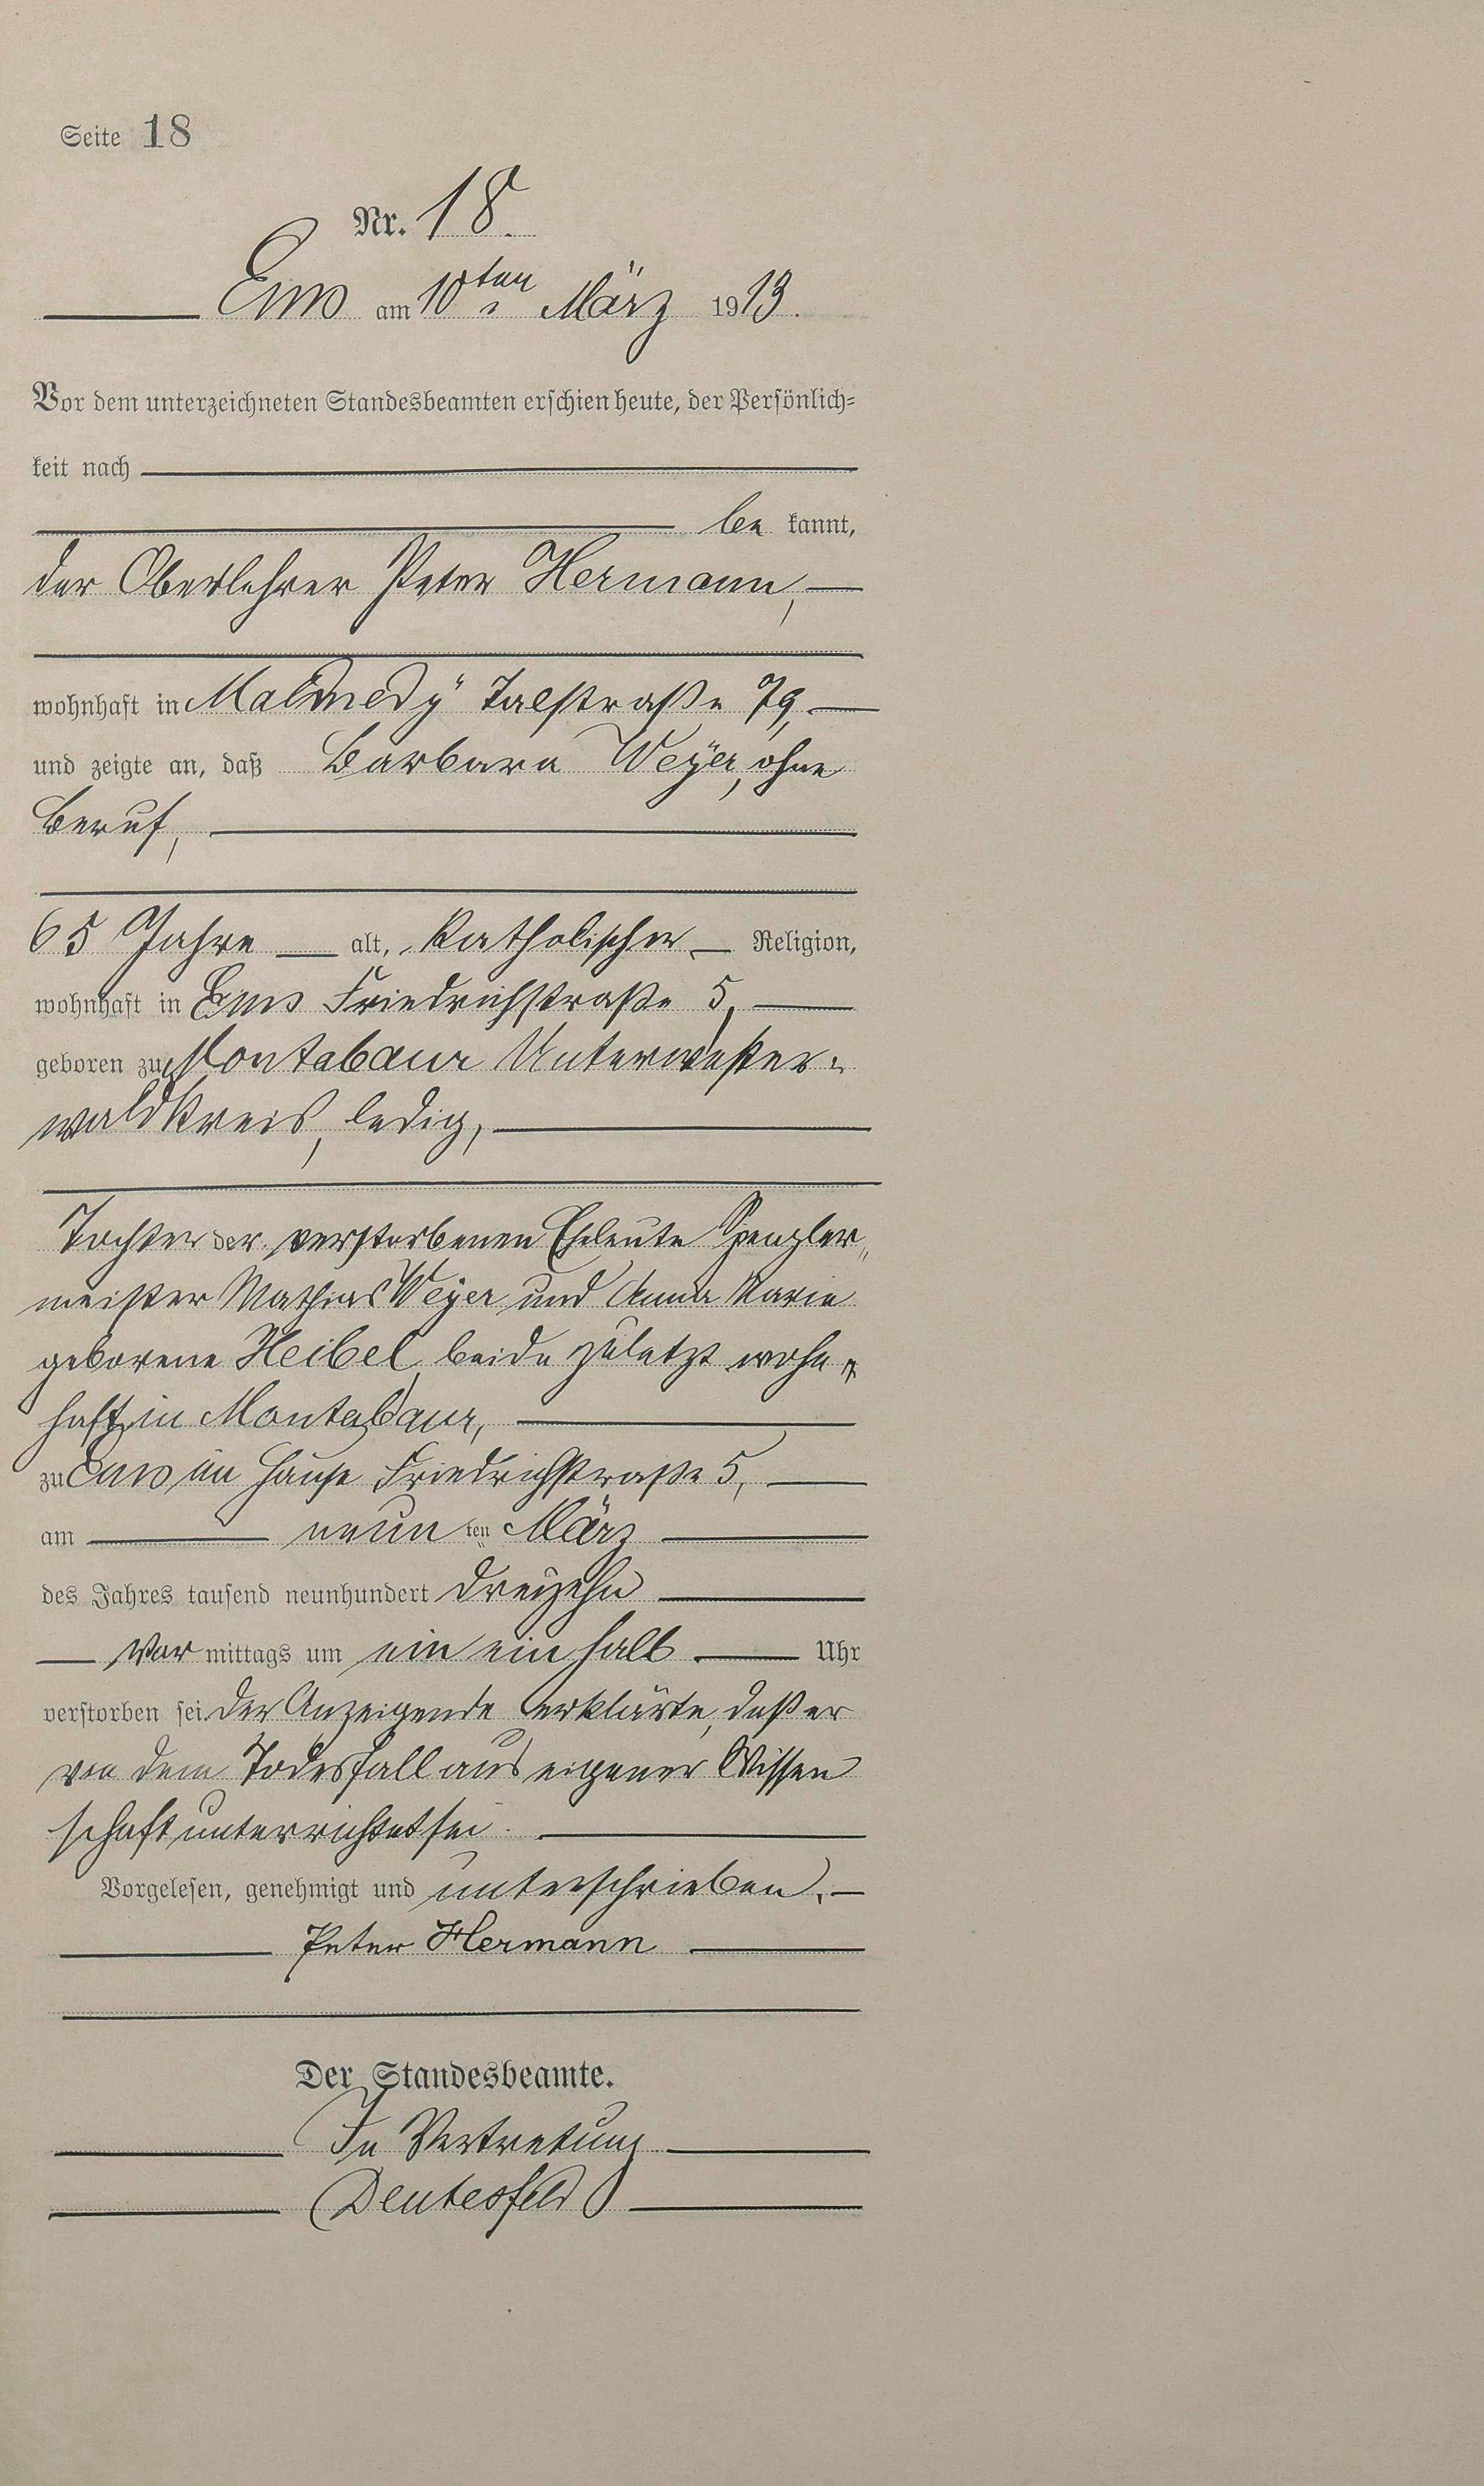 Seite 18
Nr. 18.
Ems am 10ten März 1913.
Vor dem unterzeichneten Standesbeamten erschien heute, der Persönlich-
keit nach
be kannt,
der Oberlehrer Peter Hermann,
wohnhaft in Malmedy Talstraße 79,
und zeigte an, daß Barbara Weyer, ohne
Beruf,
65 Jahre alt, katholischer Religion,
wohnhaft in Ems Friedrichstraße 5,
geboren zu Montabaur Unterwester-
waldkreis, ledig,
Tochter der verstorbenen Eheleute Spengler-
meister Mathias Weyer und Anna Maria
geborene Heibel, beide zuletzt wohn-
haft in Montabaur,
zu Ems im Hause Friedrichstraße 5,
am neun ten März
des Jahres tausend neunhundert dreizehn
Vor mittags um ein ein halb Uhr
verstorben sei. Der Anzeigende erklärte, daß er
von dem Todesfall aus eigener Wissen
schaft unterrichtet sei.
Vorgelesen, genehmigt und unterschrieben.
Peter Hermann
Der Standesbeamte.
In Vertretung